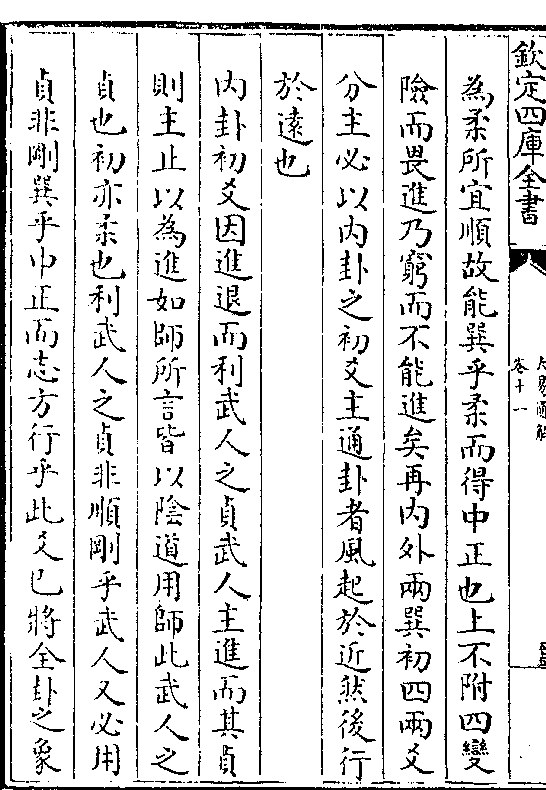 欽定四庫全書
卷十一
為柔所宜順故能巽乎柔而得中正也上不附四變
險而畏進乃窮而不能進矣再內外兩巽初四兩爻
分主必以內卦之初爻主通卦者風起於近然後行
於遠也
內卦初爻因進退而利武人之貞武人主進而其貞
則主止以為進如師所言皆以陰道用師此武人之
貞也初亦柔也利武人之貞非順剛乎武人又必用
貞非剛巽乎中正而志方行乎此爻已將全卦之象